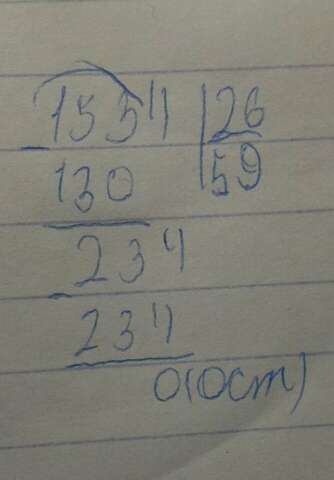 1534 26
130 59
234
234
0(ост)